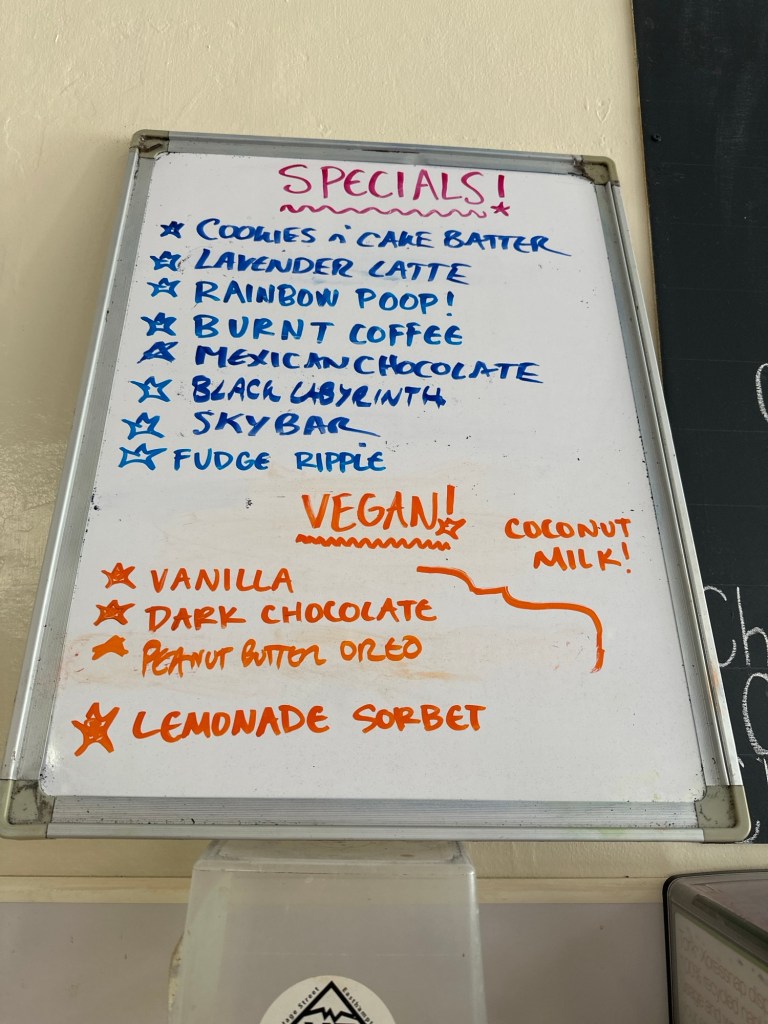 SPECIALS!
COOKIES n' CAKE BATTER
LAVENDER LATTE
RAINBOW POOP!
BURNT COFFEE
MEXICAN CHOCOLATE
BLACK LABYRINTH
SKYBAR
FUDGE RIPPLE
VEGAN!
COCONUT
MILK!
VANILLA
DARK CHOCOLATE
PEANUT BUTTER OREO
LEMONADE SORBET
Ch